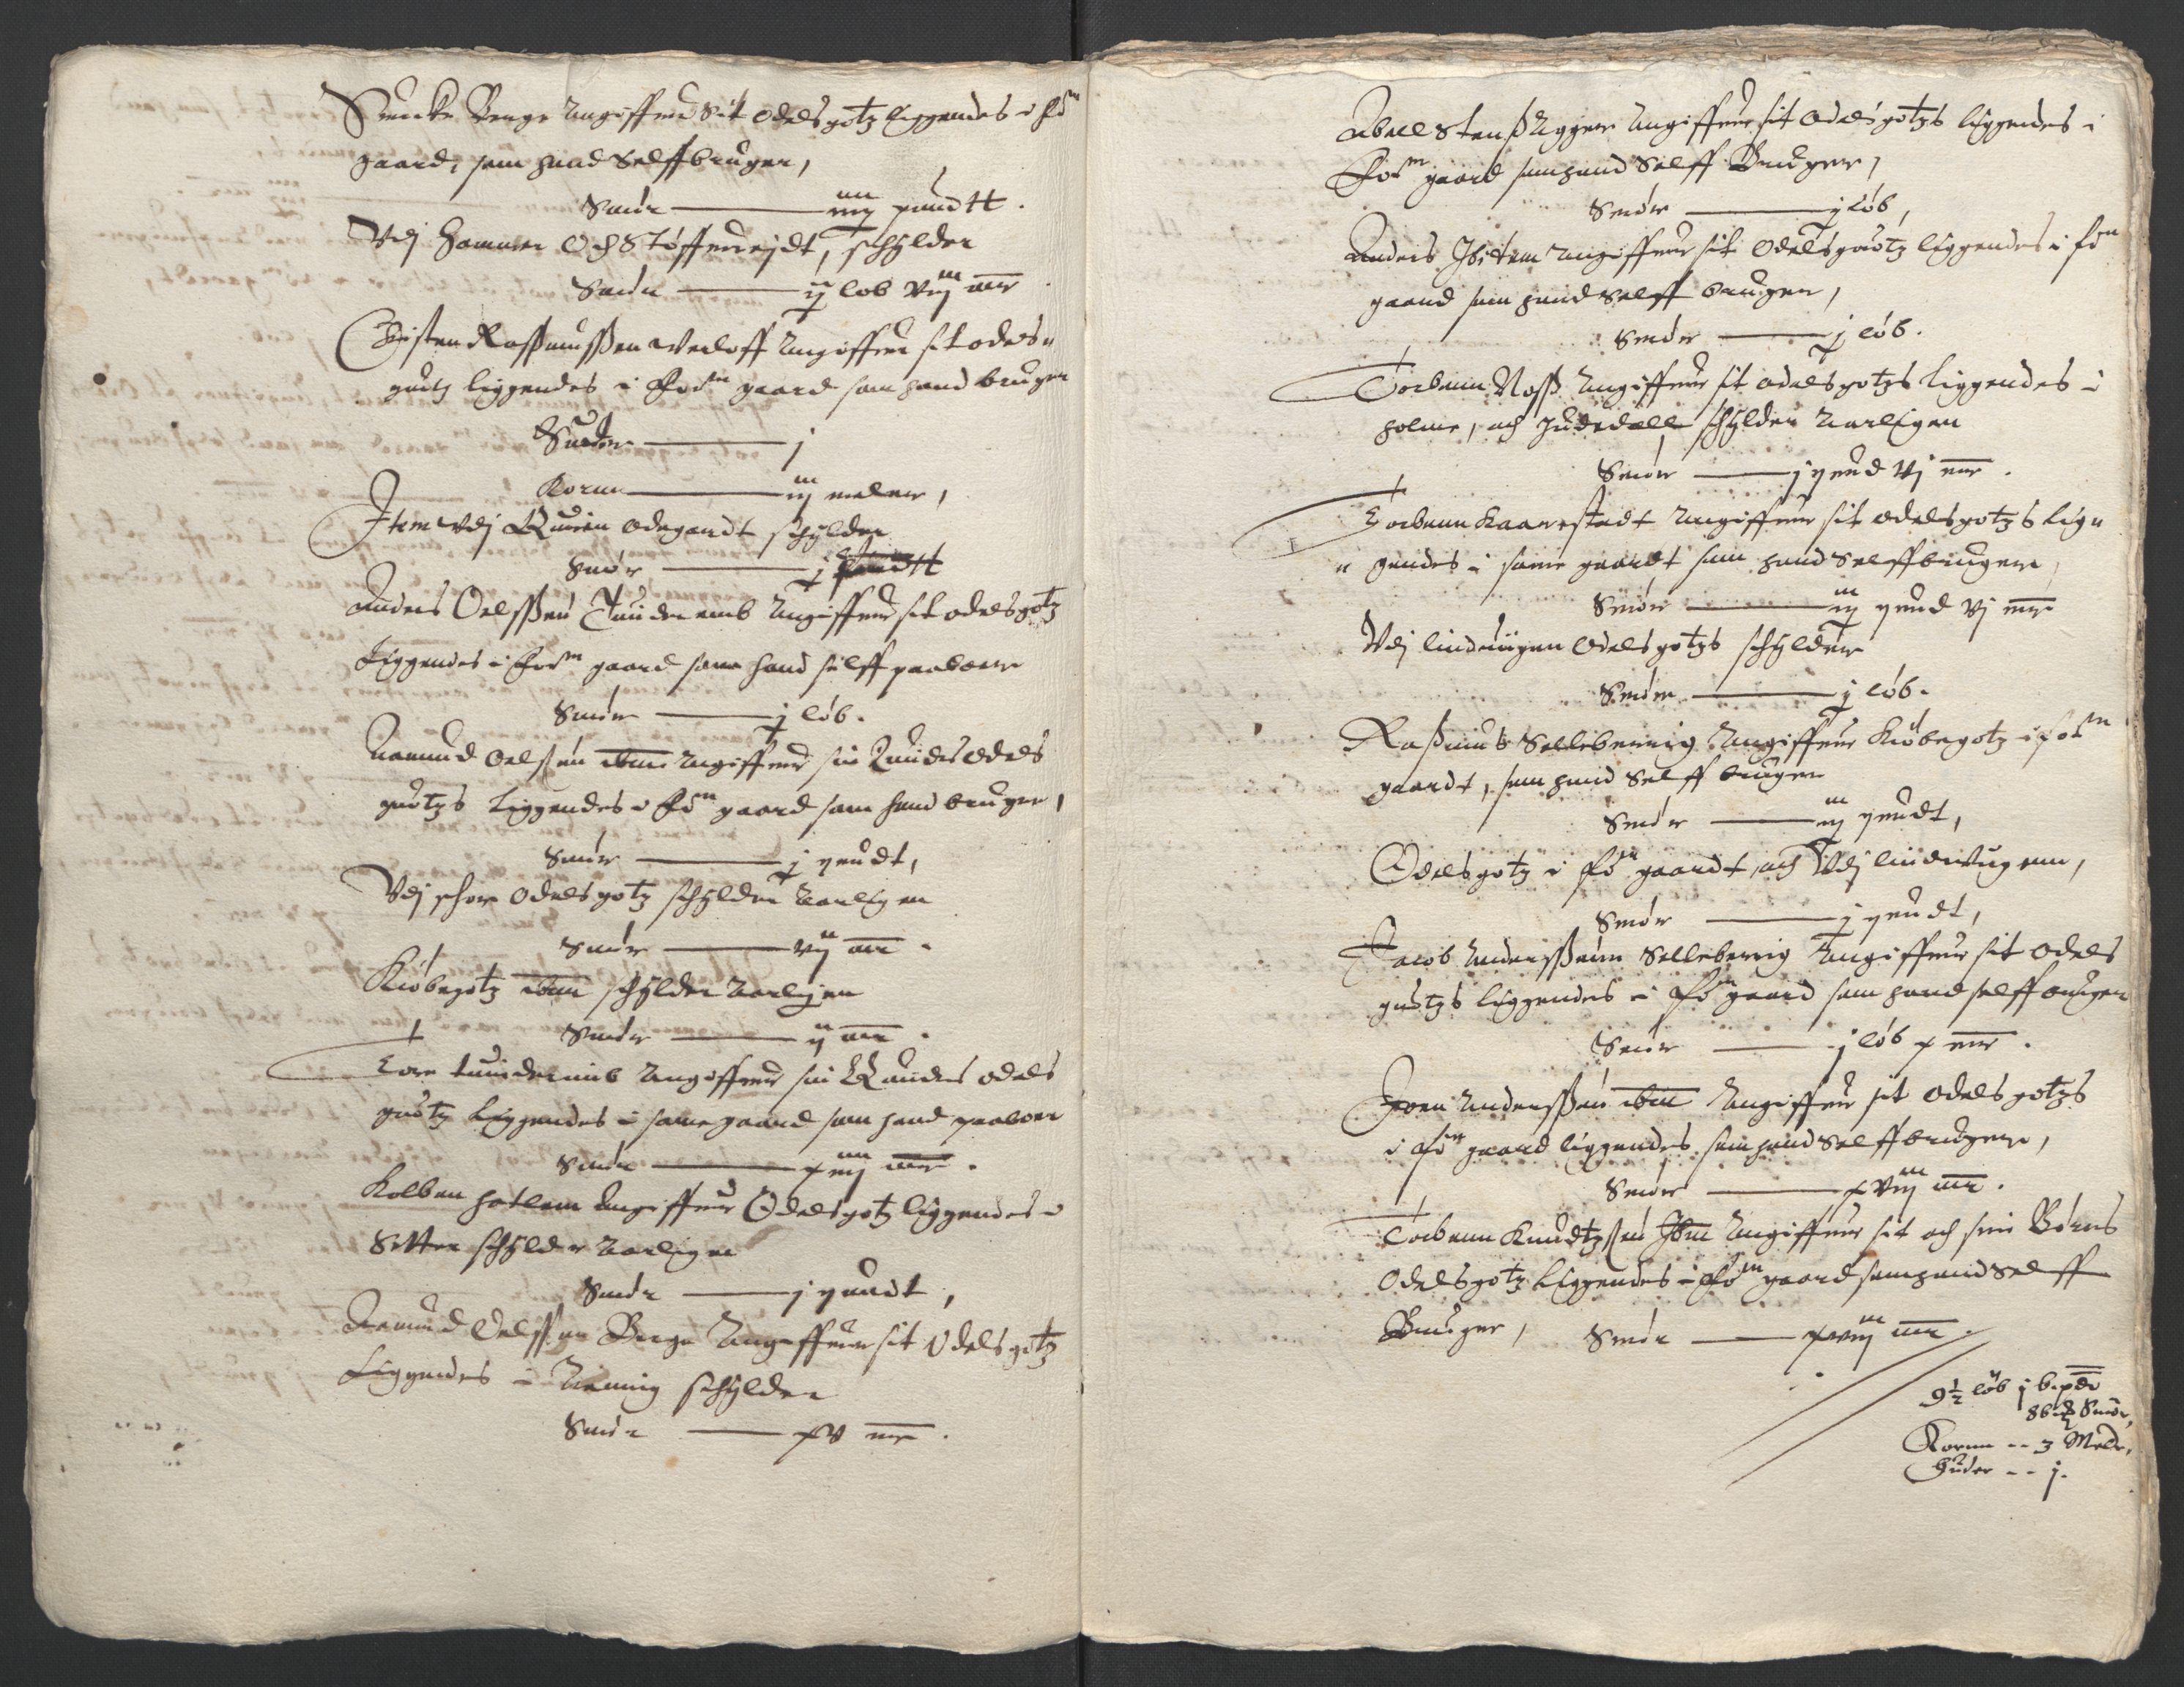 Suncke Berge Angiffuer Sit odels gotz liggendes i fo:n
gaard, som hand Selff bruger,
Smør ——— iiij pundtt.
Vdj Hammer Och Støffuereydt, schylder
Smør ——— ij løb viij mr
Christen Rassmussen Angiffuer sit odels
gutz liggendes i for:n gaard som hand bruger
Huder ——— j
Korn ——— iij meler,
Item vdj Odegardt schylder
Smør ——— j
Anders Oelssen Tuinderemb Angiffuer sit odels gotz
Liggendes i for:n gaard som hand selff paaboer
Smør ——— j løb.
Aamund Oelssen ibm Angiffuer sin quindes odels
guotzs liggendes i fo:n gaard som hand bruger,
Smør ——— j pundt,
Vdj odels gotz schylder Aarligen
Smør ——— vij mr.
Kiøbegotz ibm schylder Aarligen
Smør ——— ij mr.
Tore tuinderimb Angiffuer sin Quindes odels
guotz liggendes i same gaard som hand paaboer
Smør ——— xiiij mr.
Kolben hatlem Angiffuer Odels gotz liggendes i
Setter schylder Aarligen
Smør ——— j pundt,
Aamund Oelssen Berge Angiffuer sit Odels gotz
Liggendes i schylder
Smør ——— xv mr.
sit odels gotzs liggendes i
For:n gaard som hand Selff Bruger,
Smør ——— j løb,
Anders Ibidem Angiffuer sit Odels guotz liggendes i fo:n
gaard som hand Selff bruger,
Smør ——— j løb.
Torbenn Noss Angiffuer sit odels gotzs liggendes i
holme, och schylder Aarligen
Smør ——— j pund vj mr.
Torbenn Kaarestadt Angiffuer sit odels gotzs lig
gendes i same gaardt som hand Selff bruger,
Smør ——— iij pund vj mr
Vdj Odels gotzs schylder
Smør ——— j løb.
Rasmus Sellebernig Angiffuer Kiøbegotz i for:n
gaardt, som hand Selff bruger
Smør ——— iij pundt,
Odels gotz i fo:n gaardt, och Vdj
Smør ——— j pundt,
Jacob Anderssenn Sellebernig Angiffuer sit odels
guotzs liggendes i fo:n gaard som hand selff bruger
Smør ——— j løb x mr.
Joen Anderssen ibm Angiffuer sit odels gotzs
i fo:n gaard liggendes som hand Selff bruger,
Smør ——— xviij mr.
Torbenn Knudtzsen Ibm Angiffuer sit och sine Børns
Odels gotz liggendes i fo:n gaard som hand Selff
Bruger, Smør ——— xviij mr.
9½ løb j b.pdr
Smør,
Kornn -- 3 Meler,
Huder -- j.